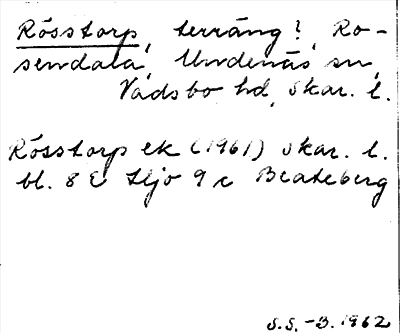 Rösstorp, terräng?, Ro-
sendala, Undenäs sn,
Vadsbo hd, Skar. l.
Rösstorp ek (1961) Skar. l.
bl. 8 E Hjo 9 c Beateberg
S.S. -B. 1962